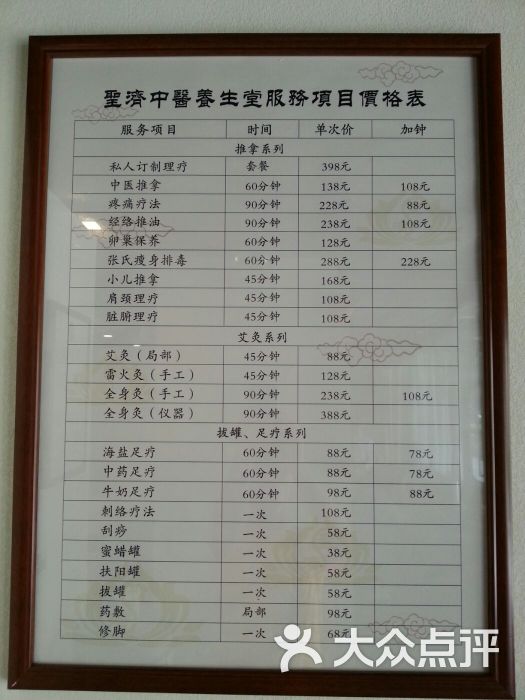 聖濟中醫養生堂服務項目價格表
服务项目 时间 单次价 加钟
推拿系列
私人订制理疗 套餐 398元
中医推拿 60分钟 138元 108元
疼痛疗法 90分钟 228元 88元
经络推油 90分钟 238元 108元
卵巢保养 60分钟 128元
张氏瘦身排毒 60分钟 288元 228元
小儿推拿 45分钟 168元
肩颈理疗 45分钟 108元
脏腑理疗 45分钟 108元
艾灸系列
艾灸（局部） 45分钟 88元
雷火灸（手工） 45分钟 128元
全身灸（手工） 90分钟 238元 108元
全身灸（仪器） 90分钟 388元
拔罐、足疗系列
海盐足疗 60分钟 88元 78元
中药足疗 60分钟 88元 78元
牛奶足疗 60分钟 98元 88元
刺络疗法 一次 108元
刮痧 一次 58元
蜜蜡罐 一次 38元
扶阳罐 一次 58元
拔罐 一次 58元
药敷 局部 98元
修脚 一次 68元
大众点评